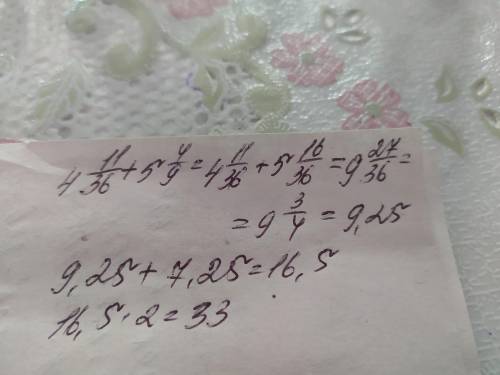 4 11/36 + 5 4/9 = 4 11/36 + 5 16/36 = 9 27/36 =
= 9 3/4 = 9,25
9,25 + 7,25 = 16,5
16,5 · 2 = 33